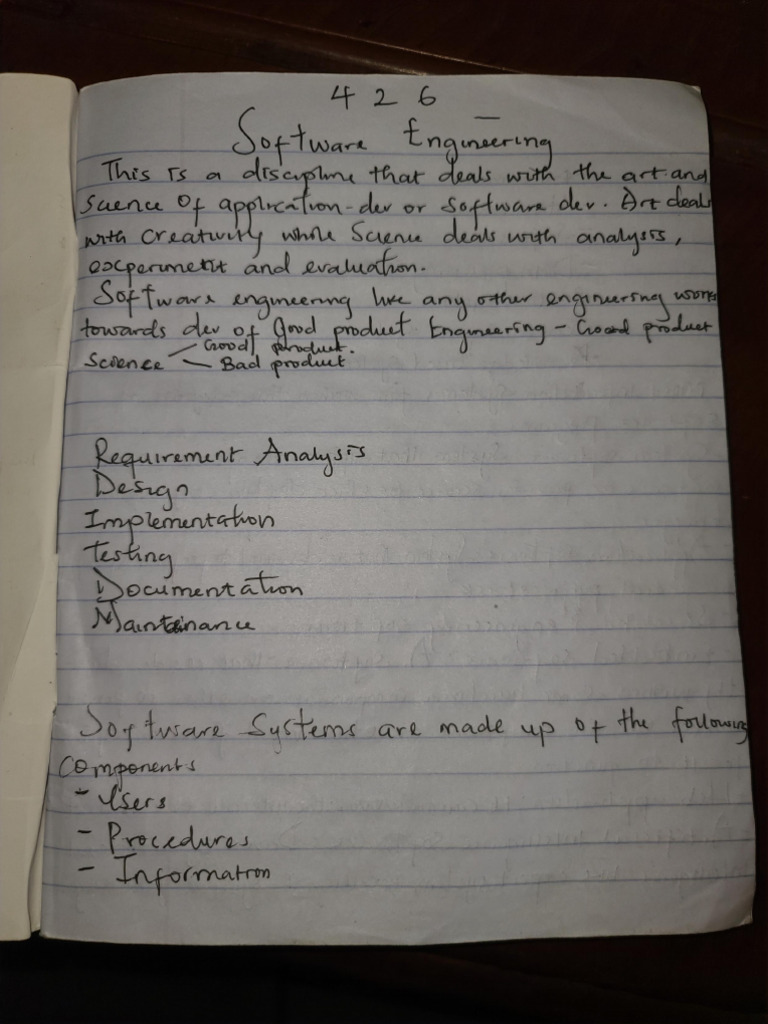 4 2 6
Software Engineering
This is a discipline that deals with the art and
Science Of application-dev or software dev. Art deals
with creativity while Science deals with analysis,
experiment and evaluation.
Software engineering like any other engineering works
towards dev of Good product Engineering - Good product
Science Good product.
- Bad product
Requirement Analysis
Design
Implementation
Testing
Documentation
Maintainance
Software Systems are made up of the following
Components
- Users
- Procedures
- Information